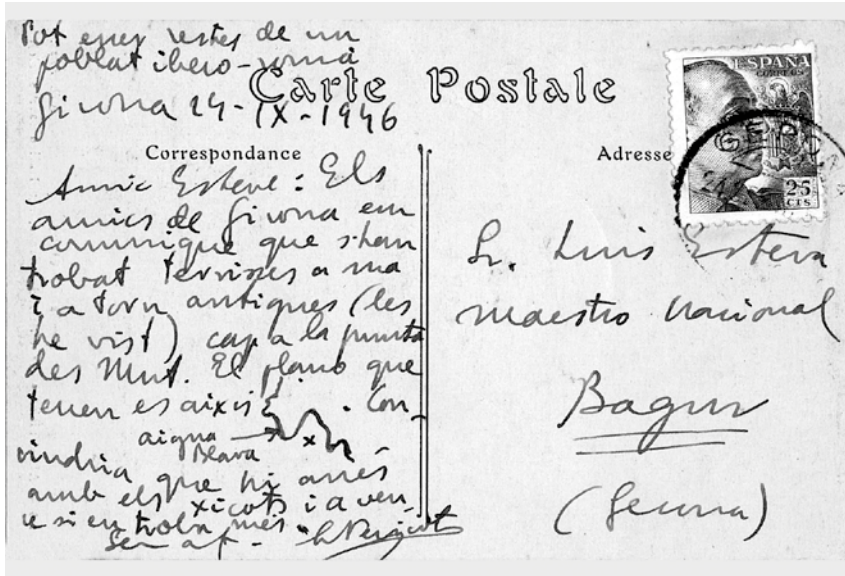 Pot esser restes de un
poblat ibero-romà
Girona 24-IX-1946
Carte Postale
Correspondance
Adresse
ESPAÑA
CORREOS
25
CTS
Amic Esteve: Els
amics de Girona em
comunique que s'han
trobat terrisses a ma
i a torn antiques (les
he vist) cap a la punta
des Mut. El plano que
tenen es aixis
. Con-
aigua
Blava
x
vindria que hi anés
amb els xicots i a veu-
re si en troba més.
Seu af.
L Pericot
Sr. Luis Esteva
Maestro Nacional
Bagur
(Gerona)